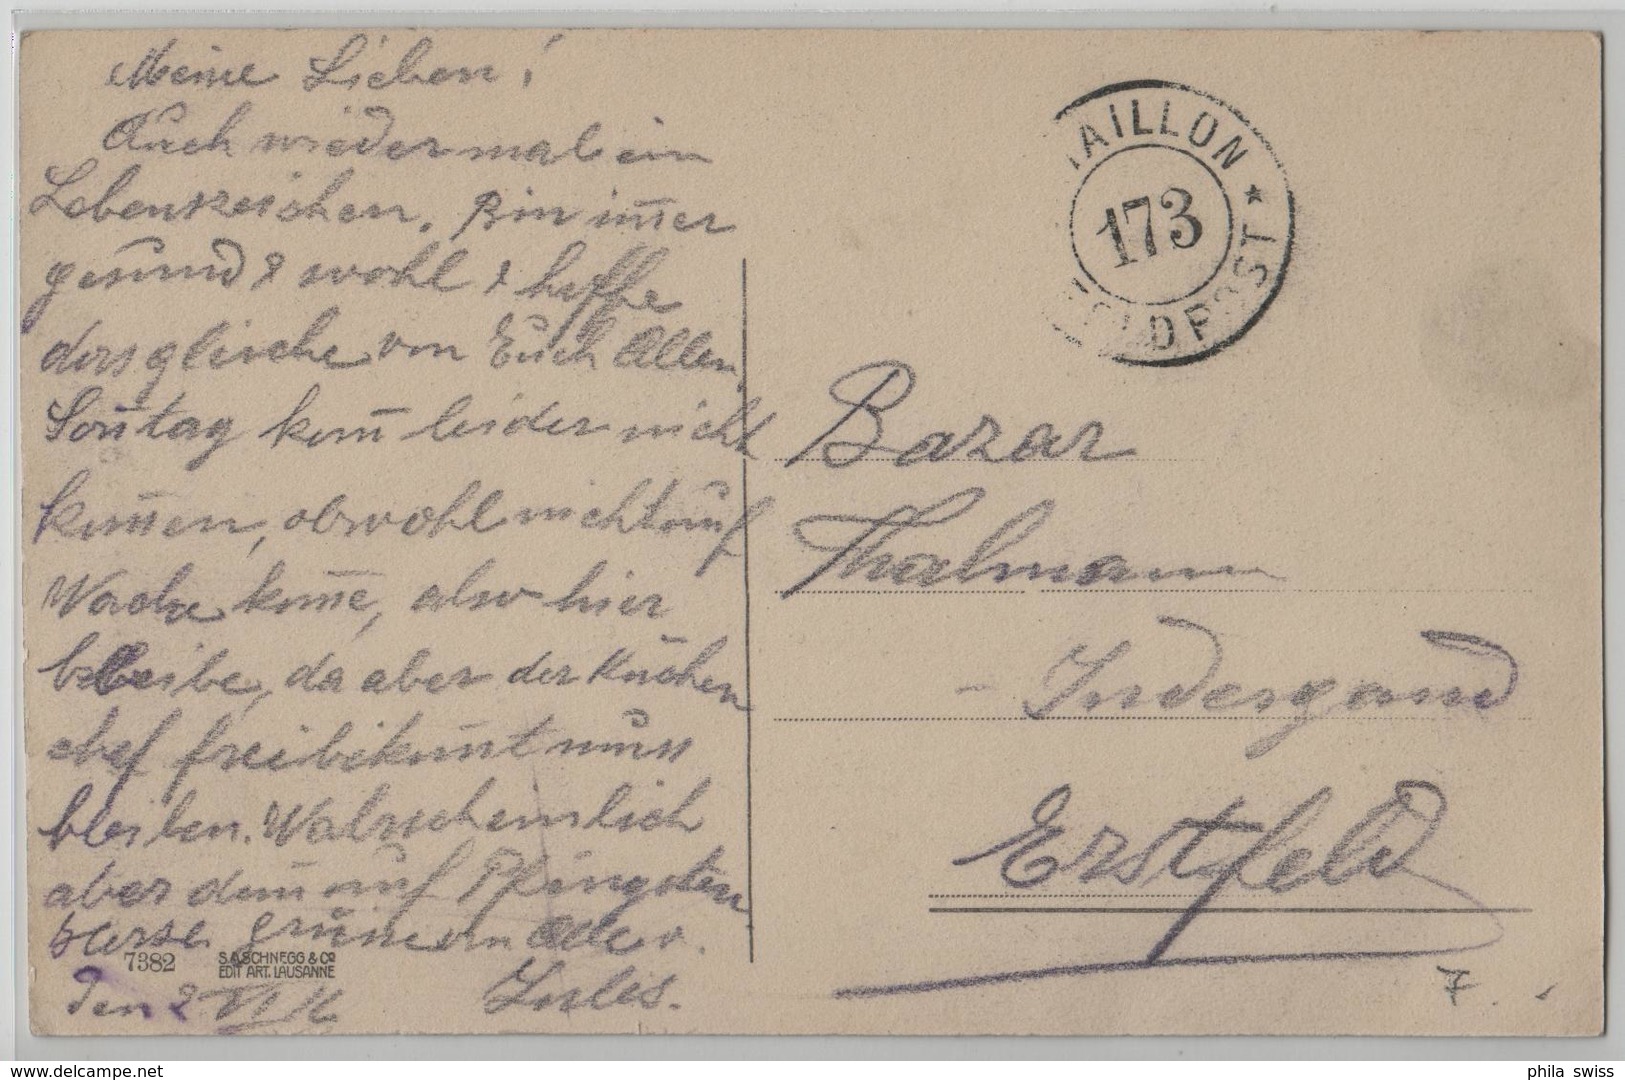 Meine Lieben!
Auch wieder mal ein
Lebenszeichen. Bin im̅er
gesund & wohl & hoffe
dersgleiche von Euch Allen,
Son̅tag kan̅ leider nicht
kom̅en, obwohl nicht auf
Wache kom̅e, also hier
bleibe, da aber der Küchen
chef frei bekom̅t muss
bleiben. Walrscheinlich
aber dan̅ auf Pfingsten
Herzl. Grüsse an Alle v.
Jules.
Den 2 VI 16
7382
S.A. SCHNEGG & Co
EDIT. ART. LAUSANNE
AILLON
173
FELDPOST
Bazar
Thalmann
- Indergand
Erstfeld
7. -
phila swiss